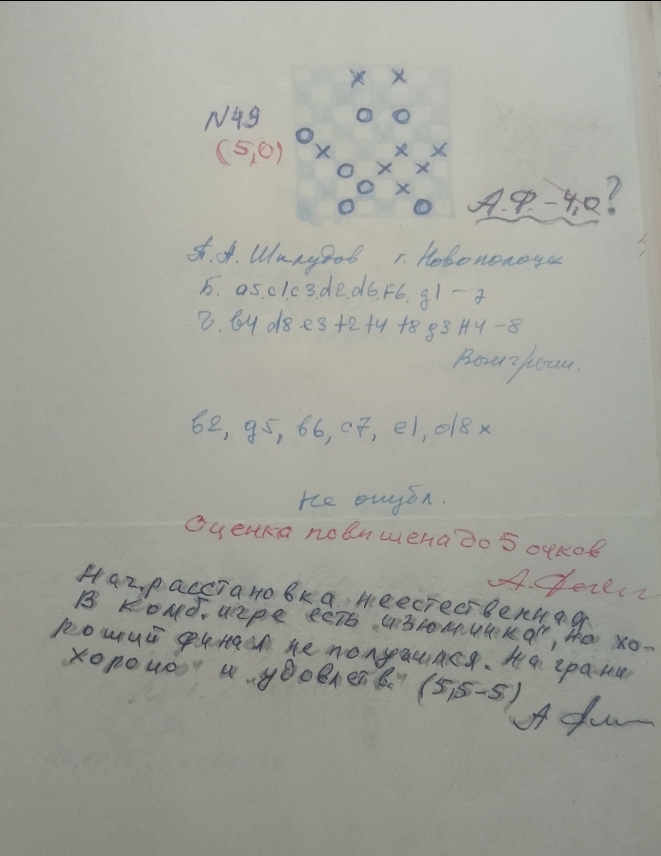 N49
(5,0)
А.Ф. - 4,0?
П. А. Шклудов г. Новополоцк
Б. a5.c1.c3.d2.d6.f6.g1 - 7
Ч. b4 d8 e3 f2 f4 f8 g3 h4 - 8
Выигрыш.
b2, g5, b6, c7, e1, d8 x
Не опубл.
Оценка повышена до 5 очков
Нач. расстановка неестественная
В комб. игре есть "изюминка", но хо-
роший финал не получился. На грани
"хорошо" и "удовлетв." (5,5-5)